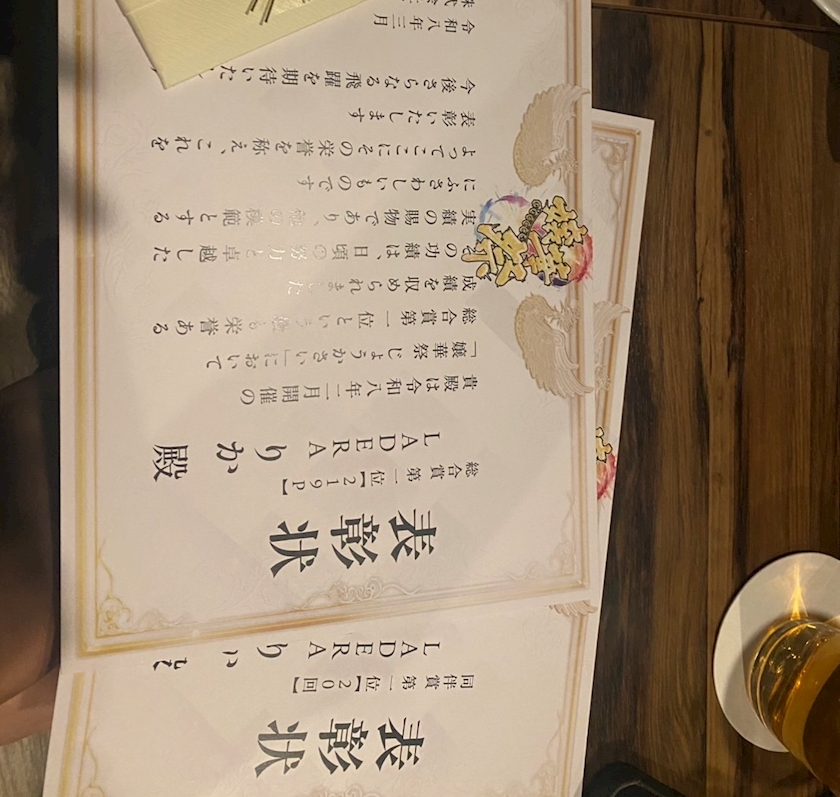 表彰状
総合賞 第一位【219P】
LADERA りか 殿
貴殿は令和八年二月開催の
「嬢華祭 じょうかさい」において
総合賞第一位という 栄誉ある
成績を収められました
の功績は、日頃の努力と卓越した
実績の賜物であり、他の模範とする
にふさわしいものです
よってここにその栄誉を称え、これを
表彰いたします
今後さらなる飛躍を期待いた
令和八年三月
嬢華祭
表彰状
同伴賞 第一位【20回】
LADERA り